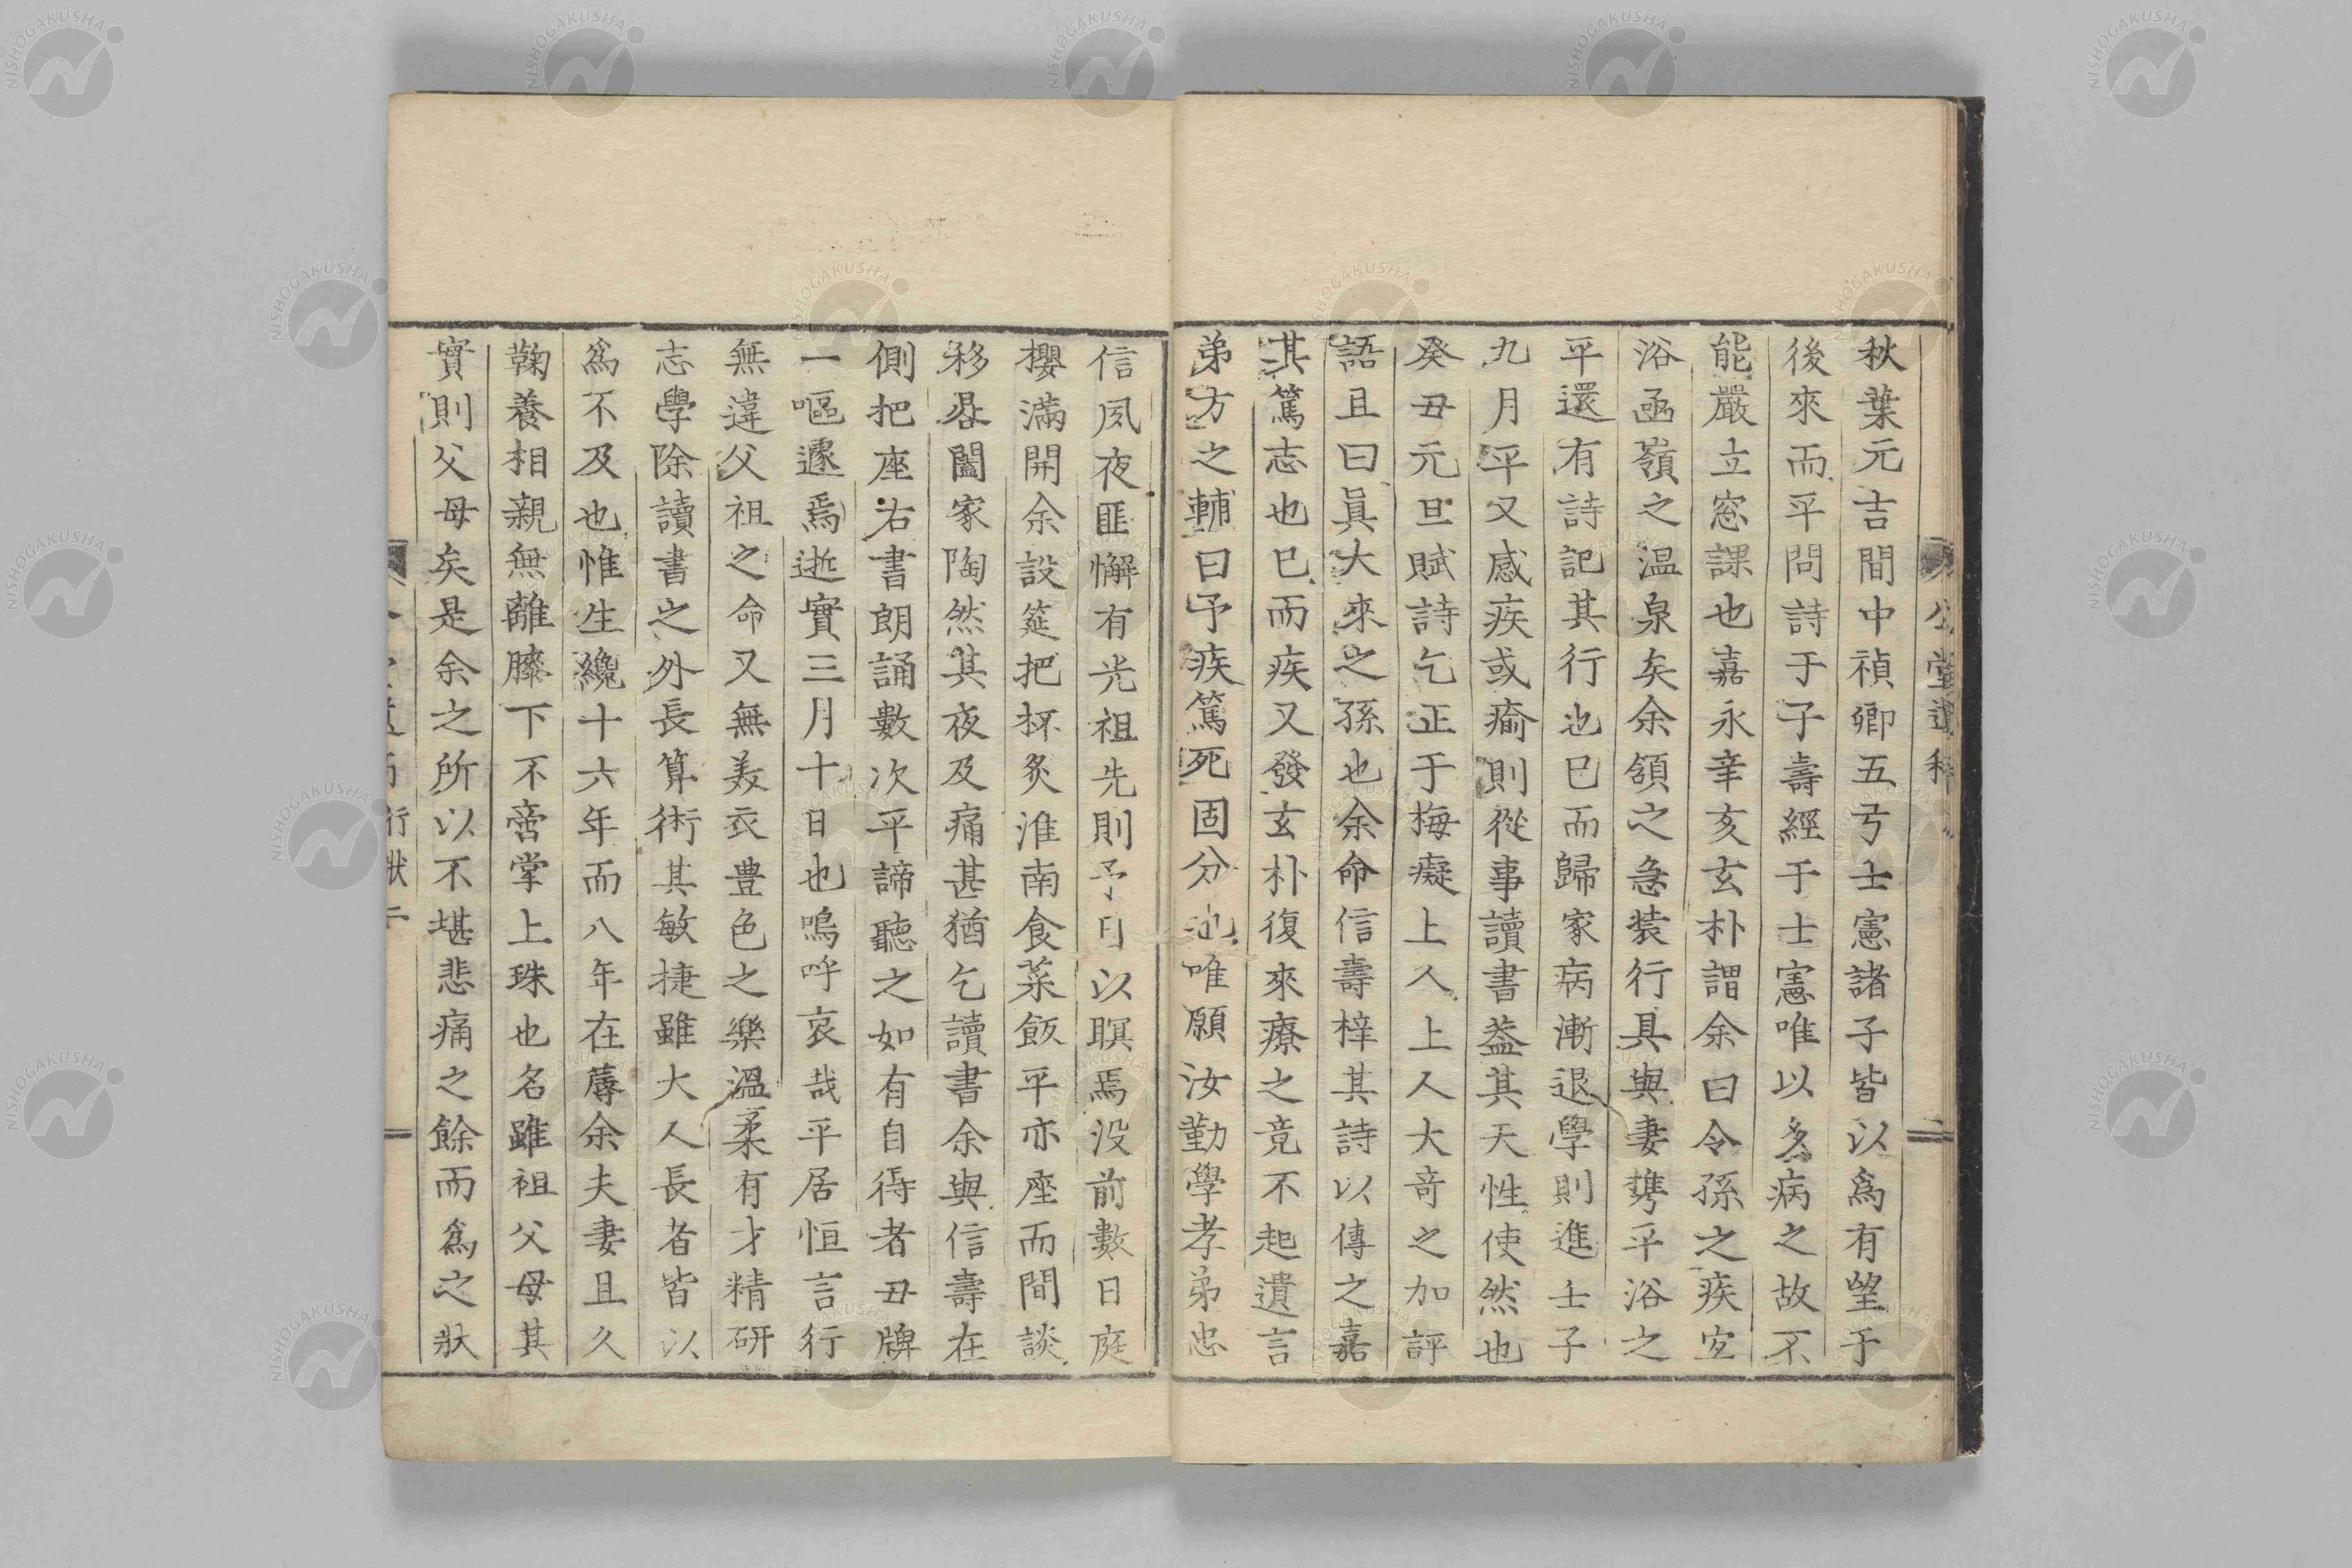 秋葉元吉間中禎卿五弓士憲諸子皆以爲有望于
後來而平問詩于子壽經于士憲唯以多病之故不
能嚴立窓課也嘉永辛亥玄朴謂余曰令孫之疾宜
浴凾嶺之温泉矣余頷之急装行具與妻携平浴之
平還有詩記其行也已而歸家病漸退學則進壬子
九月平又感疾或瘉則從事讀書蓋其天性使然也
癸丑元旦賦詩乞正于梅癡上人上人大奇之加評
語且曰眞大來之孫也余命信壽梓其詩以傳之嘉
其篤志也已而疾又發玄朴復來療之竟不起遺言
弟方之輔曰予疾篤死固分也唯願汝勤學孝弟忠
信夙夜匪懈有光祖先則予日以瞑焉没前數日庭
櫻滿開余設筵把杯炙淮南食菜飯平亦座而間談
移晷闔家陶然其夜及痛甚猶乞讀書余與信壽在
側把座右書朗誦數次平諦聽之如有自得者丑牌
一嘔遽焉逝實三月十日也嗚呼哀哉平居恒言行
無違父祖之命又無美衣豊色之樂溫柔有才精研
志學除讀書之外長算術其敏捷雖大人長者皆以
爲不及也惟生纔十六年而八年在蓐余夫妻且久
鞠養相親無離膝下不啻掌上珠也名雖祖父母其
實則父母矣是余之所以不堪悲痛之餘而爲之狀
行狀二
NISHOGAKUSHA